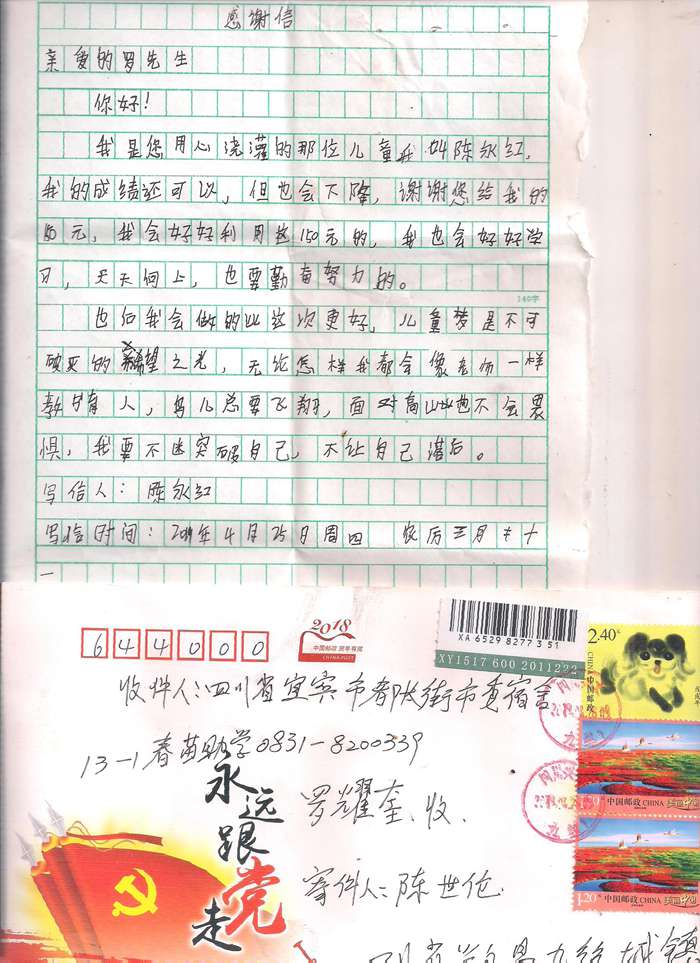 感谢信
亲爱的罗先生
你好！
我是您用心浇灌的那位儿童我叫陈永红，
我的成绩还可以，但也会下降，谢谢您给我的
150元，我会好好利用这150元的，我也会好好学
习，天天向上，也要勤奋努力的。
140字
也后我会做的比这次更好，儿童梦是不可
破灭的希望之光，无论怎样我都会像老师一样
教育人，鸟儿总要飞翔，面对高山也不会畏
惧，我要不断突破自己，不让自己落后。
写信人：陈永红
写信时间：2019年4月25日周四 农历三月二十
一
644000
2018
中国邮政 贺年有奖
CHINA POST
XA 6529 8277 3 51
XY1517 600 2011222
2.40元
CHINA
中国邮政
戊戌年
收件人：四川省宜宾市都长街市委宿舍
13-1春苗助学0831-8200339
罗耀奎 收
永远跟党走
中国邮政 CHINA 美丽中国
寄件人：陈世伦
1.20元
中国邮政 CHINA 美丽中国